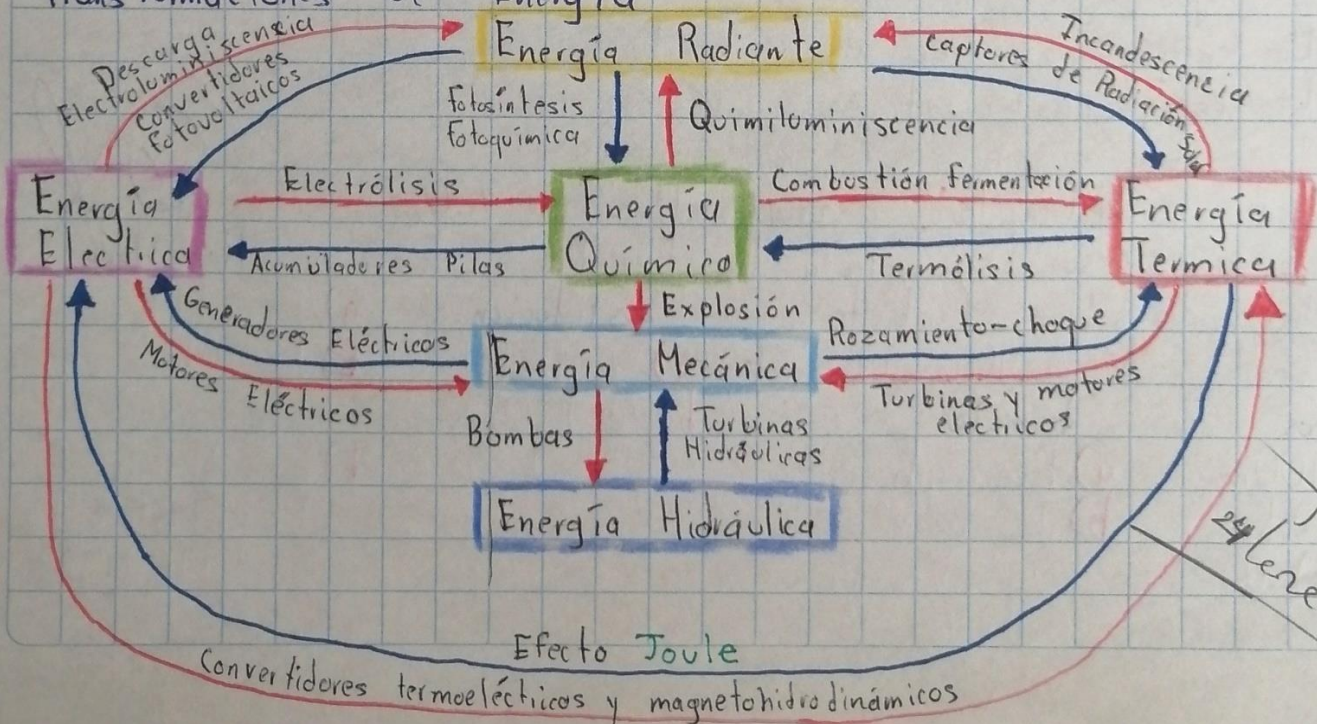 Energía
Energía Radiante
Descarga
Electroluminiscencia
Convertidores
fotovoltaicos
Incandescencia
Captores de Radiación Solar
fotosíntesis
fotoquímica
Quimiluminiscencia
Energía
Electrica
Electrólisis
Acumuladores Pilas
Energía
Químico
Combustión fermentación
Termólisis
Energía
Termica
Explosión
Generadores Eléctricos
Motores Eléctricos
Energía Mecánica
Rozamiento-choque
Turbinas y motores
electricos
Bombas
Turbinas
Hidráulicas
Energía Hidráulica
Efecto Joule
Convertidores termoeléctricos y magnetohidrodinámicos